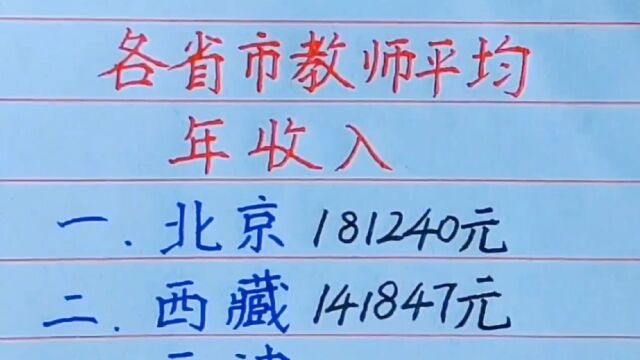 各省市教师平均
年收入
一.北京 181240元
二.西藏 141847元